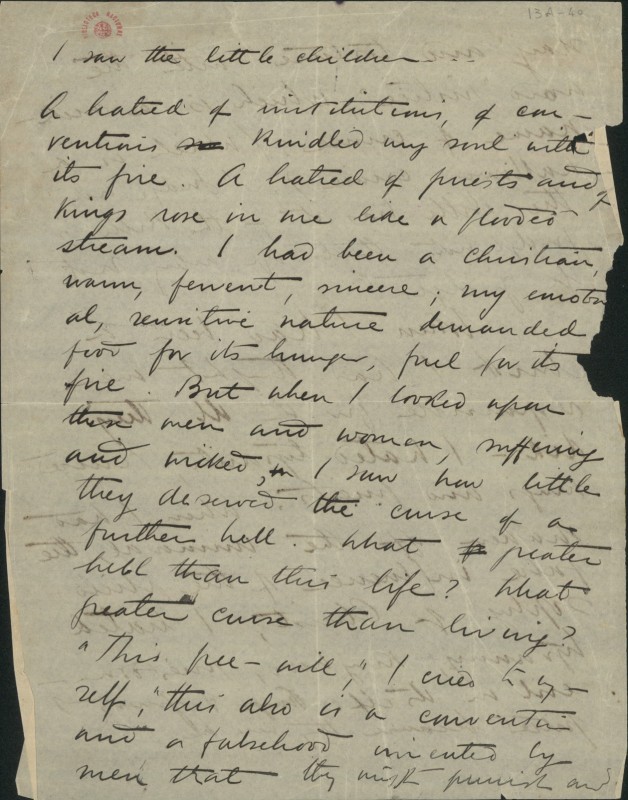 BIBLIOTECA NACIONAL
13A-40
I saw the little children
A hatred of institutions, of con-
ventions kindled my soul with
its fire. A hatred of priests and of
Kings rose in me like a flooded
stream. I had been a Christian,
warm, fervent, sincere; my emotion
al, sensitive nature demanded
food for its hunger, fuel for its
fire. But when I looked upon
these men and women, suffering
and wicked, I saw how little
they deserved the curse of a
further hell. What greater
hell than this life? What
greater curse than living?
"This free-will," I cried to my-
self, "this also is a convention
and a falsehood invented by
men that they might punish and